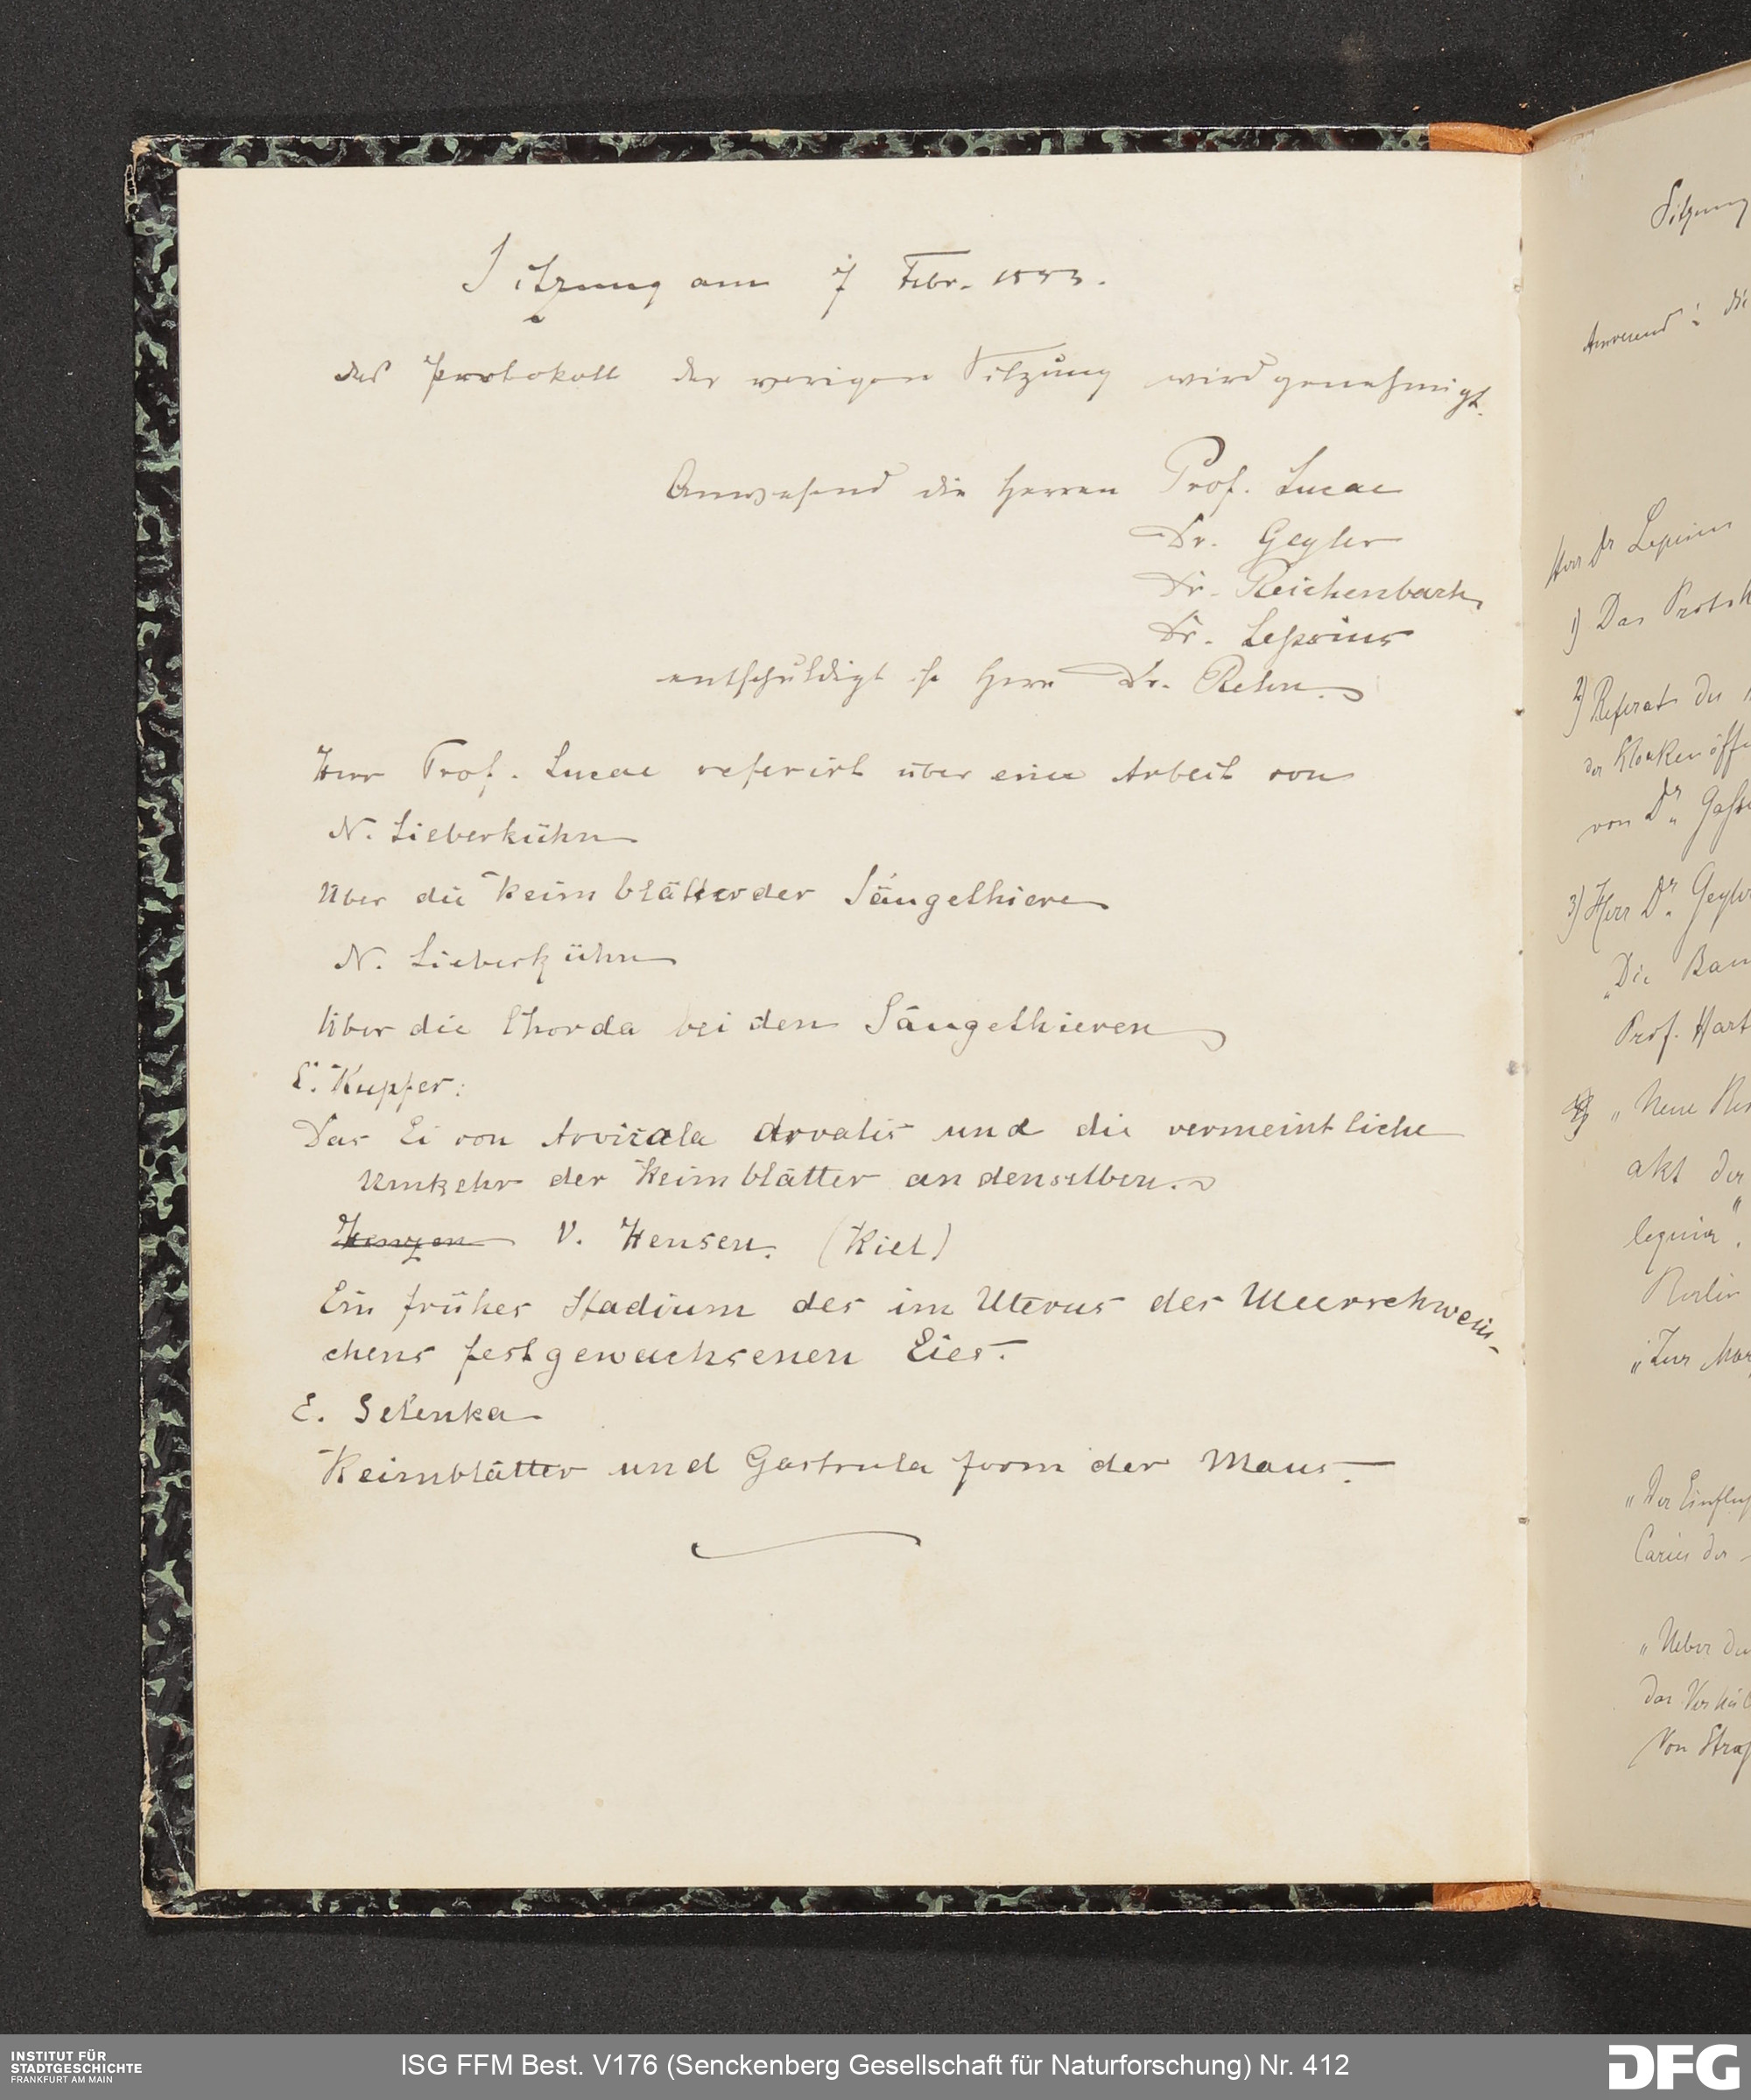 Sitzung am 7 Febr. 1883.
das Protokoll der vorigen Sitzung wird genehmigt.
Anwesend die Herren Prof. Lucae
Dr. Geyler
Dr. Reichenbach
Dr. Lepsius
entschuldigt ist Herr Dr. Rehn.
Herr Prof. Lucae referirt über eine Arbeit von
N. Lieberkühn
Über die Keimblätter der Säugethiere
N. Lieberkühn
Über die Chorda bei den Säugethieren
C. Kupfer:
Das Ei von Arvicola arvalis und die vermeintliche
Umkehr der Keimblätter an denselben.
V. Hensen. (Kiel)
Ein frühes Stadium des im Uterus des Meerschwein-
chens festgewachsenen Eies.
E. Selenka
Keimblätter und Gastrula form der Maus.
Sitzung
Anwesend: die
Herr Dr Lepsius
1) Das
2) Referat des
der
von Dr.
3) Herr Dr. Geyler
"Die
Prof. Hart
" Neue
akt der
Berlin
"Zur
"Der
Caries der
"Ueber
das
Von
INSTITUT FÜR
STADTGESCHICHTE
FRANKFURT AM MAIN
ISG FFM Best. V176 (Senckenberg Gesellschaft für Naturforschung) Nr. 412
DFG